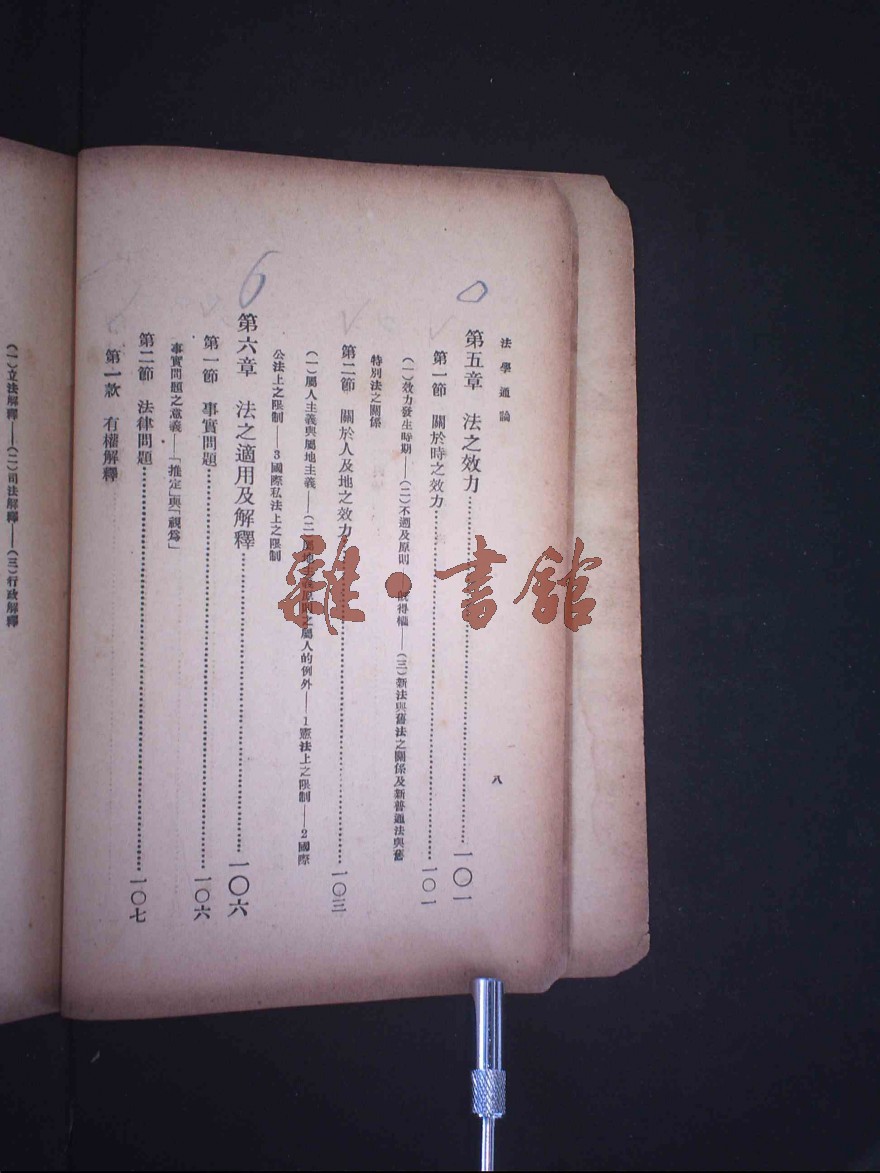 法學通論
八
第五章 法之效力……一〇一
第一節 關於時之效力……一〇一
(一)效力發生時期——(二)不遡及原則——旣得權——(三)新法與舊法之關係及新普通法與舊
特別法之關係
第二節 關於人及地之效力……一〇三
(一)屬人主義與屬地主義——(二)屬地主義原則之屬人的例外——1憲法上之限制——2國際
公法上之限制——3國際私法上之限制
6
第六章 法之適用及解釋……一〇六
第一節 事實問題……一〇六
事實問題之意義——「推定」與「視爲」
第二節 法律問題……一〇七
第一款 有權解釋
(一)立法解釋——(二)司法解釋——(三)行政解釋
雜·書館